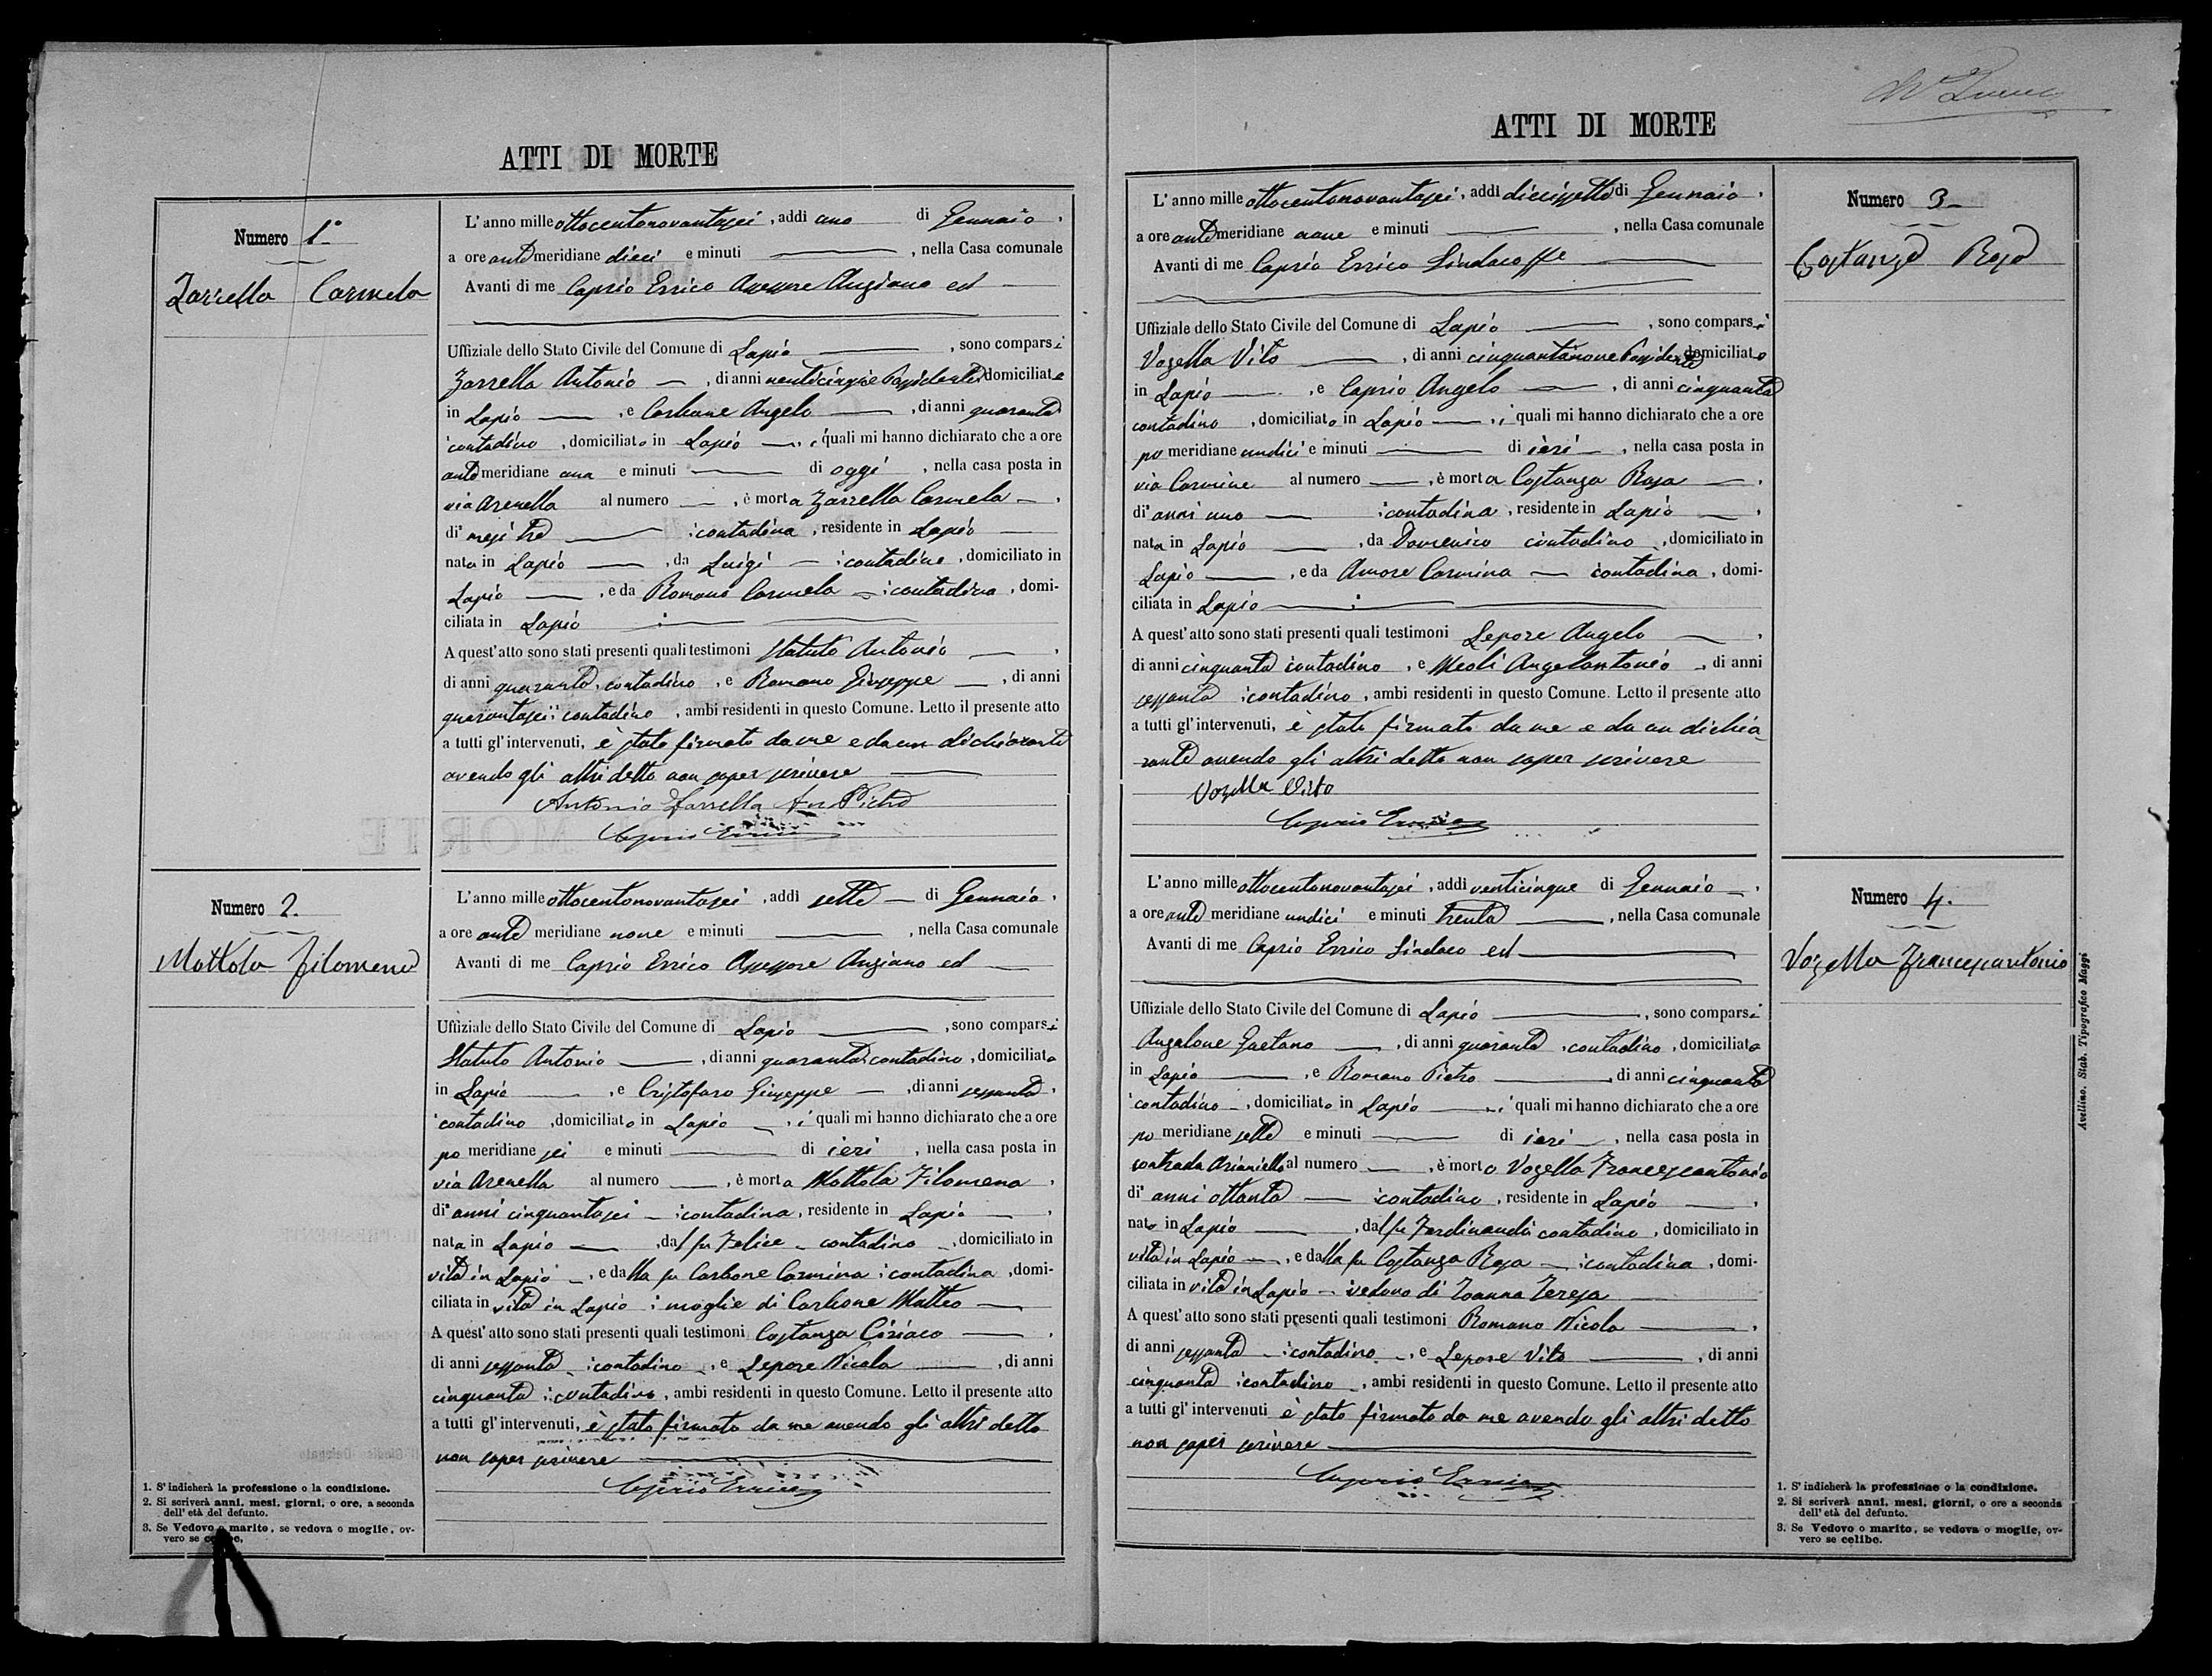 ATTI DI MORTE
Numero 1°
Zarrella Carmela
L'anno mille ottocentonovantasei, addì uno di Gennaio,
a ore ante meridiane dieci e minuti , nella Casa comunale
Avanti di me Caprio Errico Assessore Anziano ed
Uffiziale dello Stato Civile del Comune di Lapio , sono comparsi
Zarrella Antonio , di anni venticinque Possidente domiciliato
in Lapio , e Carbone Angelo , di anni quaranta
contadino , domiciliato in Lapio , i quali mi hanno dichiarato che a ore
ante meridiane una e minuti di oggi , nella casa posta in
via Arenella al numero , è morta Zarrella Carmela ,
di mesi tre contadina , residente in Lapio
nata in Lapio , da Luigi contadino , domiciliato in
Lapio , e da Romano Carmela contadina , domi-
ciliata in Lapio
A quest'atto sono stati presenti quali testimoni Statuto Antonio ,
di anni quaranta, contadino , e Romano Giuseppe , di anni
quarantasei contadino , ambi residenti in questo Comune. Letto il presente atto
a tutti gl'intervenuti, è stato firmato da me e da un dichiarante
avendo gli altri detto non saper scrivere
Antonio Zarrella fu Pietro
Caprio Errico
Numero 2.
Mottola Filomena
L'anno mille ottocentonovantasei , addì sette di Gennaio ,
a ore ante meridiane nove e minuti , nella Casa comunale
Avanti di me Caprio Errico Assessore Anziano ed
Uffiziale dello Stato Civile del Comune di Lapio , sono comparsi
Statuto Antonio , di anni quaranta contadino , domiciliato
in Lapio , e Cristofaro Giuseppe , di anni sessanta ,
contadino , domiciliato in Lapio , i quali mi hanno dichiarato che a ore
po meridiane sei e minuti di ieri , nella casa posta in
via Arenella al numero , è morta Mottola Filomena ,
di anni cinquantasei contadina , residente in Lapio ,
nata in Lapio , dal fu Felice contadino , domiciliato in
vita in Lapio , e dalla fu Carbone Carmina contadina , domi-
ciliata in vita in Lapio : moglie di Carbone Matteo
A quest'atto sono stati presenti quali testimoni Costanza Ciriaco ,
di anni sessanta contadino , e Lepore Nicola , di anni
cinquanta contadino , ambi residenti in questo Comune. Letto il presente atto
a tutti gl'intervenuti, è stato firmato da me avendo gli altri detto
non saper scrivere
Caprio Errico
1. S'indicherà la professione o la condizione.
2. Si scriverà anni, mesi, giorni, o ore, a seconda
dell'età del defunto.
3. Se Vedovo o marito, se vedova o moglie, ov-
vero se celibe.
ATTI DI MORTE
Numero 3
Costanza Rosa
L'anno mille ottocentonovantasei, addì diecisette di Gennaio ,
a ore ante meridiane nove e minuti , nella Casa comunale
Avanti di me Caprio Errico Sindaco ff.
Uffiziale dello Stato Civile del Comune di Lapio , sono comparsi
Vozella Vito , di anni cinquantanove Possidente domiciliato
in Lapio , e Caprio Angelo , di anni cinquanta
contadino , domiciliato in Lapio , i quali mi hanno dichiarato che a ore
po meridiane undici e minuti di ieri , nella casa posta in
via Carmine al numero , è morta Costanza Rosa ,
di anni uno contadina , residente in Lapio ,
nata in Lapio , da Domenico contadino , domiciliato in
Lapio , e da Amore Carmina contadina , domi-
ciliata in Lapio
A quest'atto sono stati presenti quali testimoni Lepore Angelo ,
di anni cinquanta contadino , e Meoli Angelantonio , di anni
sessanta contadino , ambi residenti in questo Comune. Letto il presente atto
a tutti gl'intervenuti, è stato firmato da me e da un dichia-
rante avendo gli altri detto non saper scrivere
Vozella Vito
Caprio Errico
Numero 4.
Vozella Francescantonio
L'anno mille ottocentonovantasei , addì venticinque di Gennaio ,
a ore ante meridiane undici e minuti trenta , nella Casa comunale
Avanti di me Caprio Errico Sindaco ed
Uffiziale dello Stato Civile del Comune di Lapio , sono comparsi
Angelone Gaetano , di anni quaranta , contadino , domiciliato
in Lapio , e Romano Pietro , di anni cinquanta
contadino , domiciliato in Lapio , i quali mi hanno dichiarato che a ore
po meridiane sette e minuti di ieri , nella casa posta in
contrada Arianiello al numero , è morto Vozella Francescantonio
di anni ottanta contadino , residente in Lapio ,
nato in Lapio , dal fu Ferdinando contadino , domiciliato in
vita in Lapio , e dalla fu Costanza Rosa contadina , domi-
ciliata in vita in Lapio vedovo di Teresa
A quest'atto sono stati presenti quali testimoni Romano Nicola ,
di anni sessanta contadino , e Lepore Vito , di anni
cinquanta contadino , ambi residenti in questo Comune. Letto il presente atto
a tutti gl'intervenuti è stato firmato da me avendo gli altri detto
non saper scrivere
Caprio Errico
1. S'indicherà la professione o la condizione.
2. Si scriverà anni, mesi, giorni, o ore a seconda
dell'età del defunto.
3. Se Vedovo o marito, se vedova o moglie, ov-
vero se celibe.
Avellino. Stab. Tipografico Maggi